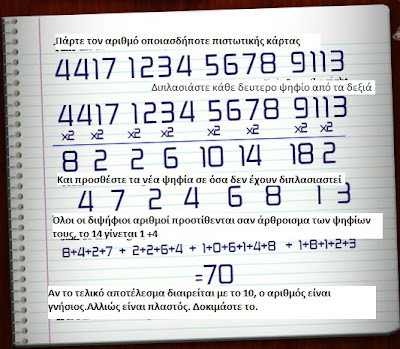 ,Πάρτε τον αριθμό οποιασδήποτε πιστωτικής κάρτας
4417 1234 5678 9113
Διπλασιάστε κάθε δευτερο ψηφίο από τα δεξιά
4417 1234 5678 9113
x2 x2 x2 x2 x2 x2 x2 x2
8 2 2 6 10 14 18 2
Και προσθέστε τα νέα ψηφία σε όσα δεν έχουν διπλασιαστεί
4 7 2 4 6 8 1 3
Όλοι οι διψήφιοι αριθμοί προστίθενται σαν άρθροισμα των ψηφίων
τους, το 14 γίνεται 1 +4
8+4+2+7 + 2+2+6+4 + 1+0+6+1+4+8 + 1+8+1+2+3
=70
Αν το τελικό αποτέλεσμα διαιρείται με το 10, ο αριθμός είναι
γνήσιος.Αλλιώς είναι πλαστός. Δοκιμάστε το.